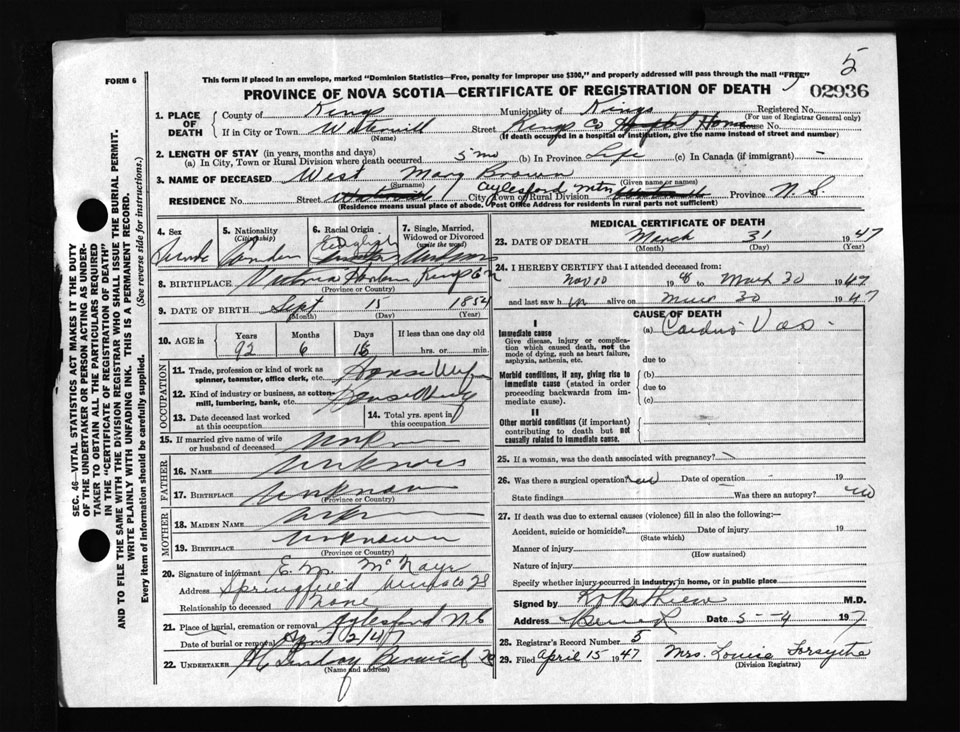 5
FORM 6
This form if placed in an envelope, marked "Dominion Statistics—Free, penalty for improper use $300," and properly addressed will pass through the mail "FREE"
PROVINCE OF NOVA SCOTIA—CERTIFICATE OF REGISTRATION OF DEATH
02936
1. PLACE OF DEATH
County of Kings Municipality of Kings Registered No.
(For use of Registrar General only)
If in City or Town Street Kings Co Hospital Home House No.
(Name) (If death occurred in a hospital or institution, give the name instead of street and number)
2. LENGTH OF STAY (in years, months and days)
(a) In City, Town or Rural Division where death occurred 5 mo (b) In Province Life (c) In Canada (if immigrant) -
3. NAME OF DECEASED West Mary Brown
(Surname) (Given name or names)
RESIDENCE No. Street City, Town or Rural Division Aylesford mtn Province N. S.
(Residence means usual place of abode. Post Office Address for residents in rural parts not sufficient)
4. Sex 5. Nationality (Citizenship) 6. Racial Origin 7. Single, Married, Widowed or Divorced (write the word)
English
8. BIRTHPLACE Victoria Harbor Kings Co
(Province or Country)
9. DATE OF BIRTH Sept 15 1854
(Month) (Day) (Year)
10. AGE in Years Months Days If less than one day old
92 6 16 hrs. or min.
OCCUPATION
11. Trade, profession or kind of work as spinner, teamster, office clerk, etc. House Wife
12. Kind of industry or business, as cotton-mill, lumbering, bank, etc.
13. Date deceased last worked at this occupation
14. Total yrs. spent in this occupation
15. If married give name of wife or husband of deceased
FATHER
16. NAME Unknown
17. BIRTHPLACE Unknown
(Province or Country)
MOTHER
18. MAIDEN NAME
19. BIRTHPLACE Unknown
(Province or Country)
20. Signature of informant E. M.
Address Springfield
Relationship to deceased None
21. Place of burial, cremation or removal Aylesford N.S
Date of burial or removal April 2/47
22. UNDERTAKER Lindsay Berwick
(Name and address)
MEDICAL CERTIFICATE OF DEATH
23. DATE OF DEATH March 31 1947
(Month) (Day) (Year)
24. I HEREBY CERTIFY that I attended deceased from:
Nov 10 to March 30 1947
and last saw h alive on March 30 1947
CAUSE OF DEATH
I
Immediate cause
Give disease, injury or complication which caused death, not the mode of dying, such as heart failure, asphyxia, asthenia, etc.
(a) Cardio Vas.
due to
Morbid conditions, if any, giving rise to immediate cause (stated in order proceeding backwards from immediate cause).
(b)
due to
(c)
II
Other morbid conditions (if important) contributing to death but not causally related to immediate cause.
25. If a woman, was the death associated with pregnancy?
26. Was there a surgical operation? Date of operation 19
State findings Was there an autopsy? no
27. If death was due to external causes (violence) fill in also the following:—
Accident, suicide or homicide? Date of injury 19
(State which)
Manner of injury
(How sustained)
Nature of injury
Specify whether injury occurred in industry, in home, or in public place
Signed by M.D.
Address Berwick Date 5--4 1947
28. Registrar's Record Number 5
29. Filed April 15 1947 Mrs. Louise Forsythe
(Division Registrar)
SEC. 46—VITAL STATISTICS ACT MAKES IT THE DUTY
OF THE UNDERTAKER OR PERSON ACTING AS UNDERTAKER TO OBTAIN ALL THE PARTICULARS REQUIRED
IN THE "CERTIFICATE OF REGISTRATION OF DEATH"
AND TO FILE THE SAME WITH THE DIVISION REGISTRAR WHO SHALL ISSUE THE BURIAL PERMIT.
WRITE PLAINLY WITH UNFADING INK. THIS IS A PERMANENT RECORD.
Every item of information should be carefully supplied. (See reverse side for instructions.)